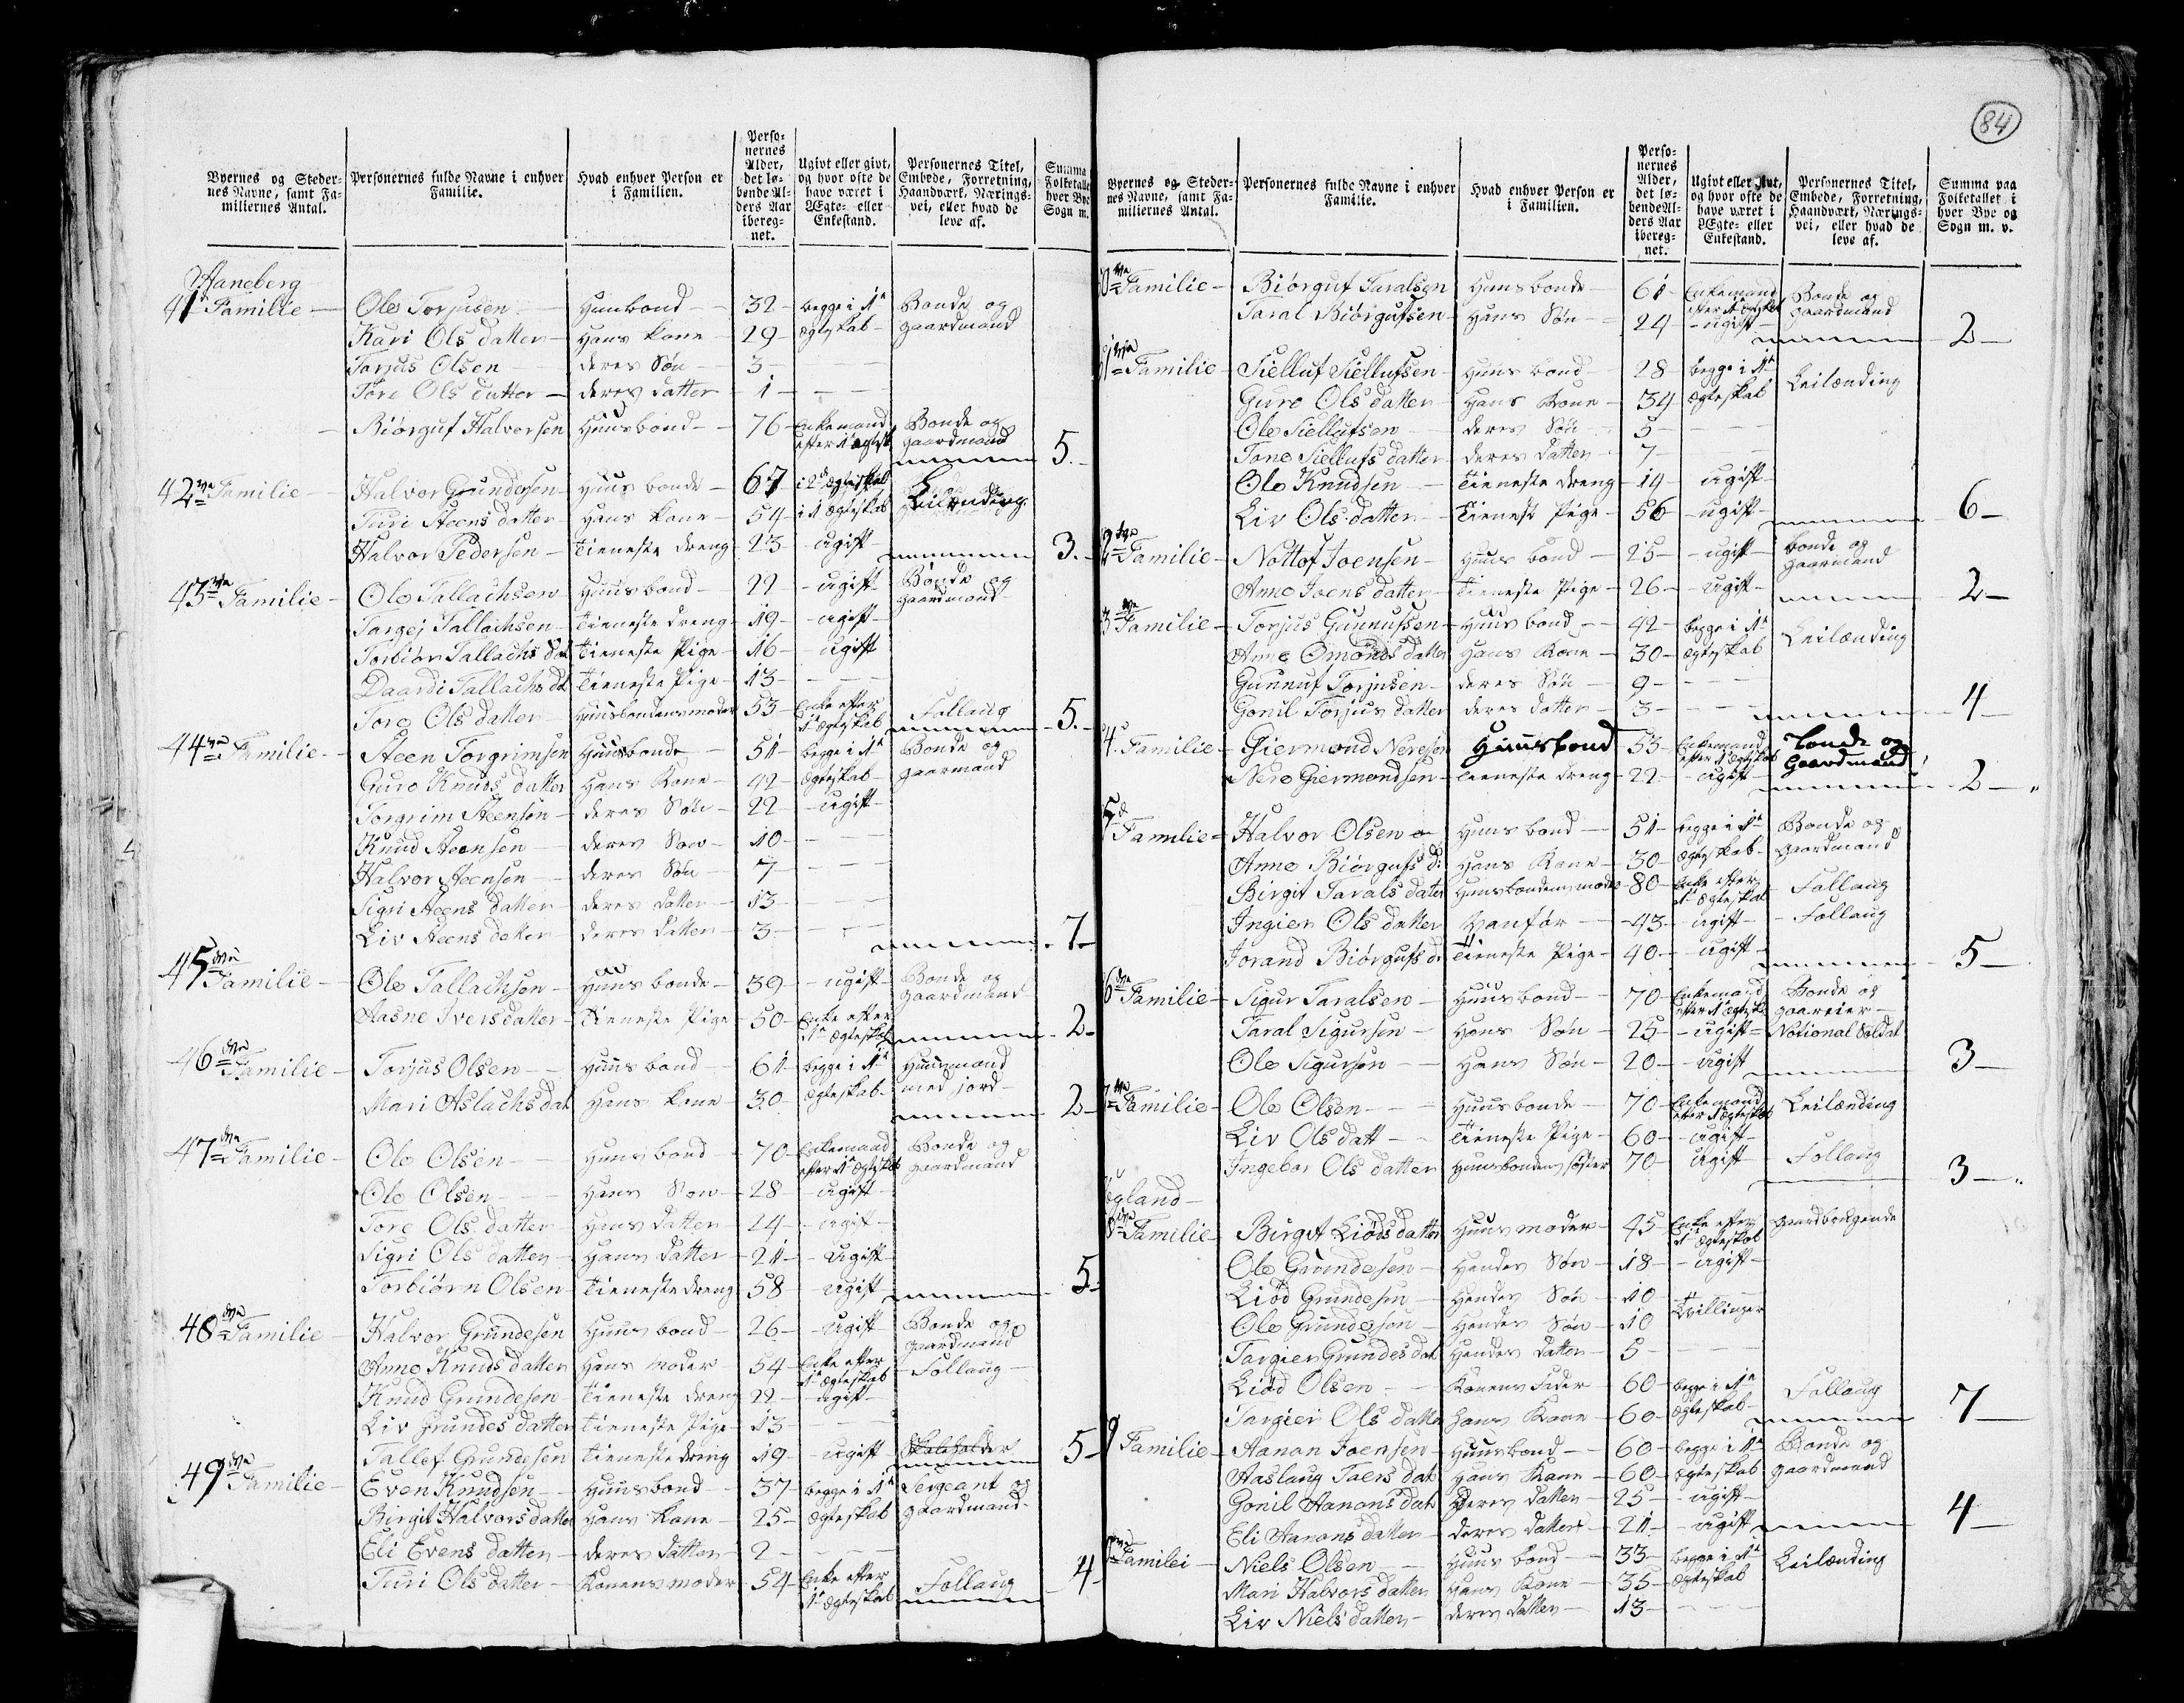 84
Byernes og Steder-
nes Navne, samt Fa-
miliernes Antal.
Personernes fulde Navne i enhver
Familie.
Hvad enhver Person er
i Familien.
Perso-
nernes
Alder,
det lø-
bende Al-
ders Aar
ibereg-
net.
Ugivt eller givt,
og hvor ofte de
have været i
Ægte- eller
Enkestand.
Personernes Titel,
Embede, Forretning,
Haandværk, Nærings-
vei, eller hvad de
leve af.
Summa
Folketalle
hver Bye
Sogn m.
Haneberg
41 Familie — Ole Torjusen — Huusbond — 32 — begge i 1te Bonde og
Kari Olsdatter — Hans kone — 29 — ægteskab — gaardmand
Torjus Olsen deres Søn — 3 —
Tore Ols datter — deres datter — 1 —
Biørguf Halvorsen Huusbond — 76 — Enkemand Bonde og
efter 1te ægtesk gaardmand 5.
42 Familie — Halvor Grundesen Huus bonde — 67 i 2d ægteskab Leilending
Turi Steens datter Hans kone — 54 i 1 ægteskab
Halvor Pedersen — tieneste dreng 23 — ugift — 3.
43 Familie — Ole Tallachsen Huusbond — 22 — ugift — Bonde og
gaardmand
Targej Tallachsen tieneste dreng 19 — ugift
Torbiør Tallachs Dat tieneste Pige — 16 — ugift
Daardi Tallachs dat tieneste Pige — 13 —
Tore Ols datter — Huusbondens moder 53 — Enke efter Follaug
1te ægteskab 5.
44 Familie — Steen Torgrimsen Huusbonde — 51 — begge i 1te Bonde og
Guro Knuds datter Hans Kone — 42 — ægteskab — gaarmand
Torgrim Steensøn — deres Søn — 22 — ugift
Knud Steensen — deres Søn — 10 —
Halvor Steensen — deres Søn — 7 —
Sigri Steens datter — deres datter — 13 —
Liv Steens datter — deres datter — 3 — 7
45 Familie — Ole Tallachsøn — Huus bonde — 39 — ugift — Bonde og
gaardmand
Aasne Iversdatter — tieneste Pige — 50 — Enke efter
1te ægteskab 2
46 Familie — Torjus Olsen — Huus bond — 61 — begge i 1te Huusmand
Mari Aslachs dat Hans kone — 30 — ægteskab — med jord 2
47 Familie — Ole Olsen — Huus bond — 70 — Enkemand Bonde og
efter 1te ægtesk gaardmand
Ole Olsen — Hans Søn — 28 — ugift
Tore Ols datter — Hans datter — 24 — ugift
Sigri Ols datter — Hans datter — 21 — ugift
Torbiørn Olsen tieneste dreng 58 — ugift 5
48 Familie — Halvor Grundesen Huus bond — 26 — ugift — Bonde og
gaardmand
Anne Knuds datter Hans moder — 54 — Enke efter Follaug
1te ægteskab
Knud Grundesen — tieneste dreng 22 — ugift
Liv Grundes datter tieneste Pige — 13
Tallef Grundesen tieneste dreng 19 — ugift 5
49 Familie — Even Knudsen — Huusbond — 37 — begge i 1te Sergeant og
Birgit Halvorsdatter Hans kone — 25 — ægteskab gaardmand
Eli Evens datter — deres datter — 2 —
Turi Ols datter — Konens moder — 54 — Enke efter Follaug 4
1te ægteskab
Byernes og Steder-
nes Navne, samt Fa-
miliernes Antal.
Personernes fulde Navne i enhver
Familie.
Hvad enhver Person er
i Familien.
Perso-
nernes
Alder,
det lø-
bende Al-
ders Aar
ibereg-
net.
Ugivt eller givt,
og hvor ofte de
have været i
Ægte- eller
Enkestand.
Personernes Titel,
Embede, Forretning,
Haandværk, Nærings-
vei, eller hvad de
leve af.
Summa paa
Folketallet i
hver Bye og
Sogn m. v.
0 Familie — Biørguf Taralsen Huusbonde — 61 — Enkemand Bonde og
efter 1te ægtesk gaardmand
Taral Biørgufsen — Hans Søn — 24 — ugift — 2
1 Familie — Sielluf Siellufsen — Huus bond — 28 — begge i 1te Leilænding
Guro Ols datter — Hans Kone — 34 — ægteskab
Ole Siellufsen — deres Søn — 5 —
Tone Siellufs datter deres datter — 7 —
Ole Knudsen — tieneste dreng — 14 — ugift
Liv Ols datter — tienest Pige — 56 — ugift — 6
2 Familie — Nottof Joensen — Huus bond — 25 — ugift — bonde og
gaarmand
Anne Joens datter — tieneste Pige — 26 — ugift — 2
3 Familie — Torjus Gunnufsen — Huus bond — 42 — begge i 1te Leilænding
Anne Omonds datter Hans Kone — 30 — ægteskab
Gunnuf Torjusen — deres Søn — 9 —
Gonil Torjus datter deres datter — 3 — 4
4 Familie — Giermond Neresen Huusbond 53 — Enkemand bonde og
efter 1te ægteskab Gaardmand
Nere Giermondsen — tieneste dreng — 22 — ugift — 2
5 Familie — Halvor Olsen — Huus bond — 51 — begge i 1te Bonde og
Anne Biørgufs d: Hans Kone — 30 — ægteskab — gaardmand
Birgit Tarals datter Huusbondens moder 80 — Enke efter Follaug
1te ægteskab
Ingier Ols datter Vanfør — 43 — ugift — Follaug
Jorand Biørgufs d: tieneste Pige — 40 — ugift — 5
6 Familie — Sigur Taralsen — Huus bond — 70 — Enkemand Bonde og
efter 1te ægtesk gaareier
Taral Sigursen — Hans Søn — 25 — ugift — National Soldat
Ole Sigursøn — Hans Søn — 20 — ugift 3
7 Familie — Ole Olsen — Huusbonde — 70 — Enkemand Leilænding
efter 1te ægteskab
Liv Ols datt — tieneste Pige — 60 — ugift
Ingebor Ols datter Huusbondens søster 70 — ugift — Follaug 3
gland
8 Familie — Birgit Liøds datter Huus moder — 45 — Enke efter Gaardbrugende
1te ægteskab
Ole Grundesen — Hendes Søn — 18 — ugift
Liød Grundesen — Hendes Søn — 10 tvillinger
Ole Grundesøn — Hendes Søn — 10
Targier Grundes dat Hendes datter — 5 —
Liød Olsen — Konens Fader 60 — begge i 1te Follaug
Targier Ols datter Hans Kone — 60 — ægteskab — 7
9 Familie — Aanan Joensen — Huusbond — 60 — begge i 1te Bonde og
Aaslaug Taers dat Hans Kone — 60 — ægteskab gaardmand
Gonil Aanans dat Deres datter — 25 — ugift
Eli Aanans datter — deres datter — 21 — ugift 4
Familei — Niels Olsen — Huus bond — 33 — begge i 1te Leilænding
Mari Halvors datter Hans Kone — 35 — ægteskab
Liv Niels datter — deres datter — 13 —